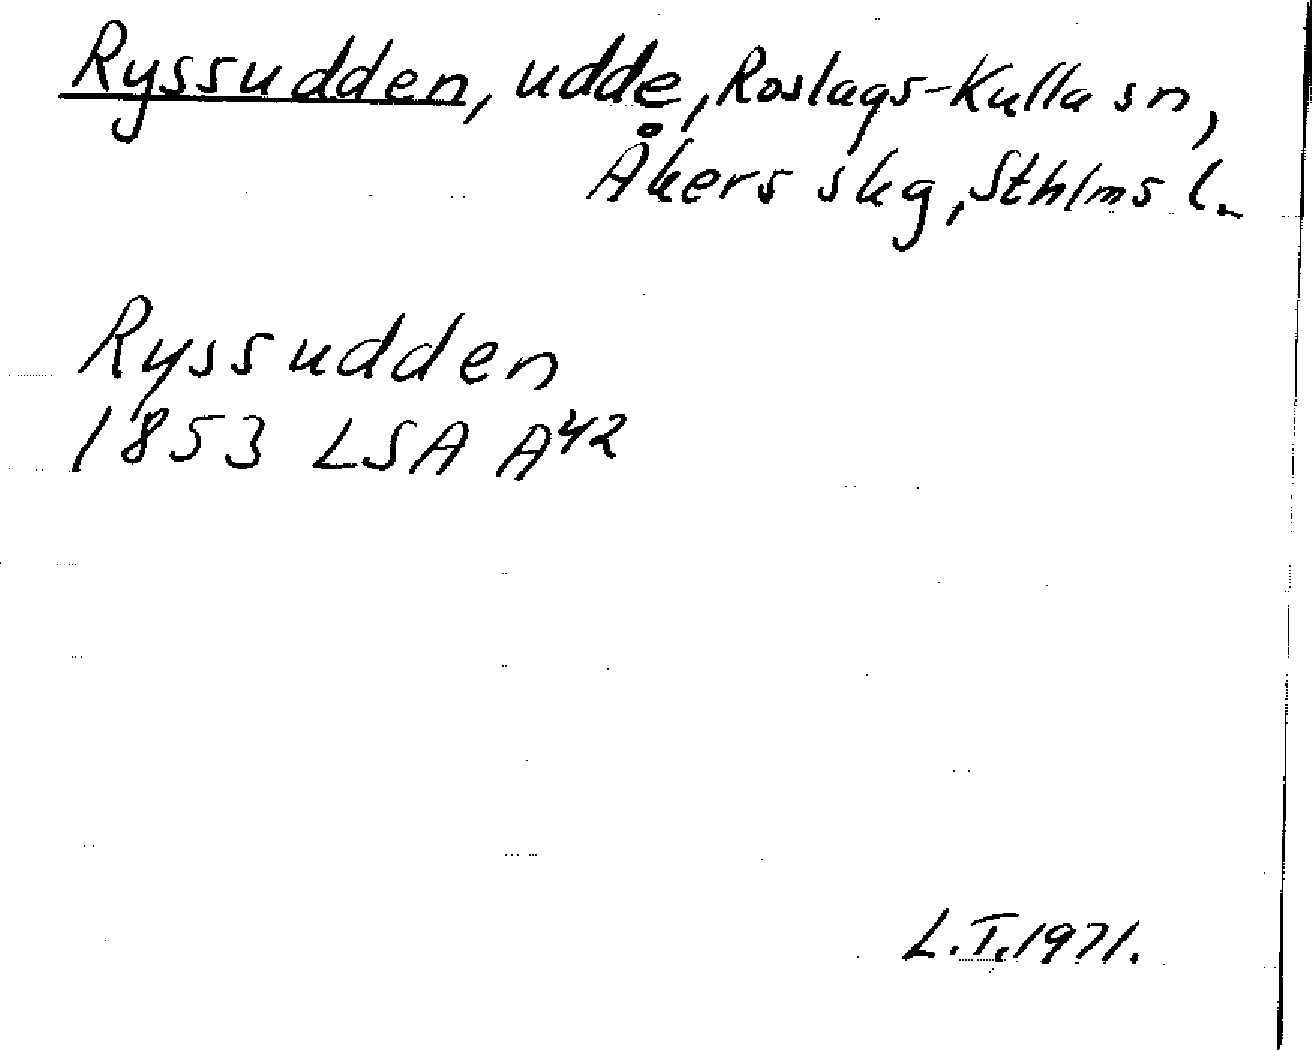 Ryssudden, udde, Roslags-Kulla sn,
Åkers skg, Sthlms l.
Ryssudden
1853 LSA A42
L.T. 1971.